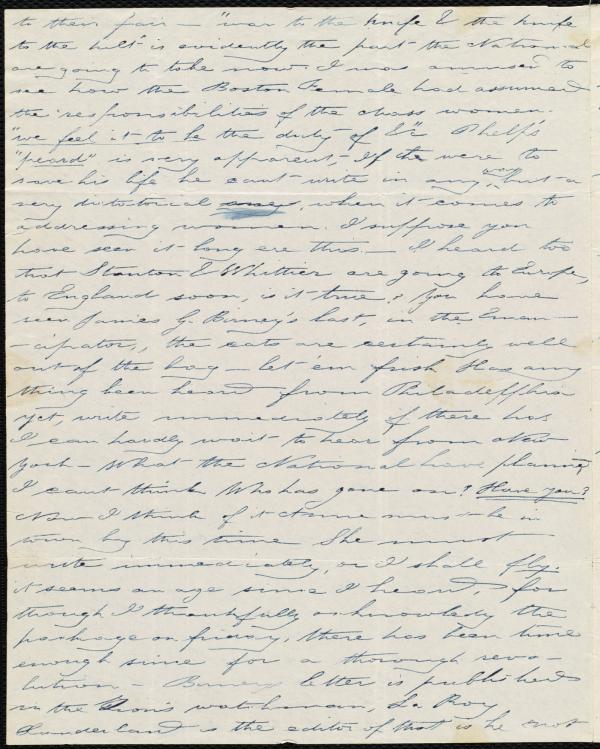 to their fair – "war to the knife & the knife
to the hilt" is evidently the part the National
are going to take now. I was amused to
see how the Boston Female had assumed
the responsibilities of the mass women.
"we feel it to be the duty of &c" Phelp's
"peard" is very apparent,– If he were to
save his life he cant write in any way but a
very dictatorial, when it comes to
addressing women. I suppose you
have seen it long ere this. – I heard too
that Stanton & Whittier are going to Europe,
to England soon, is it true? You have
seen James G. Birney's last, in the Eman-
-cipator, the cats are certainly well
out of the bag – let 'em frisk Has any
thing been heard from Philadelphia
yet, write immediately if there has
I can hardly wait to hear from New
York – What the National have planned
I cant think Who has gone on? Have you?
Now I think of it Anne must be in
town by this time She must
write immediately, or I shall fly.
it seems an age since I heard, for
though I thankfully acknowledg the
package on friday, there has been time
enough since for a thorough revo-
lution – Birney letter is published
in the Zion's watchman, La Roy
Sunderland is the editor of that is he not